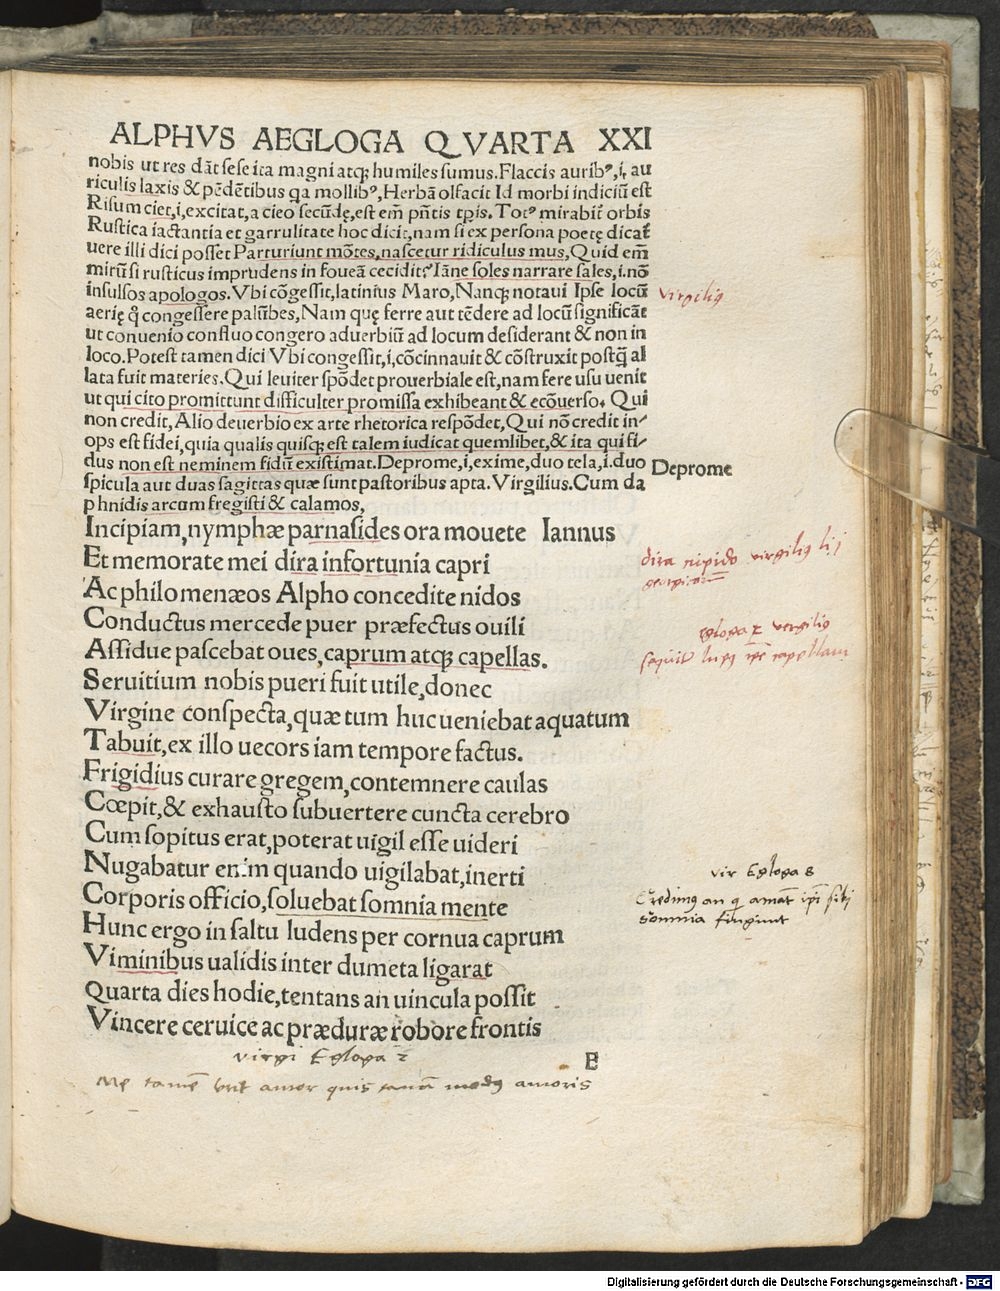 ALPHVS AEGLOGA QVARTA XXI
nobis ut res dāt sese ita magni atq; humiles sumus. Flaccis aurib⁹, i, au
riculis laxis & pēdētibus qa mollib⁹, Herbā olfacit Id morbi indiciū est
Risum ciet, i, excitat, a cieo secūdę, est em̄ pn̄tis tp̄is. Tot⁹ mirabit̄ orbis
Rustica iactantia et garrulitate hoc dicit, nam si ex persona poetę dicat̄
uere illi dici posset Parturiunt mōtes, nascetur ridiculus mus, Quid em̄
mirū si rusticus imprudens in foueā cecidit? Iāne soles narrare sales, i. nō
insulsos apologos. Vbi cōgessit, latinius Maro, Nanq; notaui Ipse locū
Virgilius
aerię q̄ congessere palūbes, Nam quę ferre aut tēdere ad locū significāt
ut conuenio confluo congero aduerbiū ad locum desiderant & non in
loco. Potest tamen dici Vbi congessit, i, cōcinnauit & cōstruxit postq̄ al
lata fuit materies. Qui leuiter spōdet prouerbiale est, nam fere usu uenit
ut qui cito promittunt difficulter promissa exhibeant & ecōuerso. Qui
non credit, Alio deuerbio ex arte rhetorica respōdet, Qui nō credit in/
ops est fidei, quia qualis quisq; est talem iudicat quemlibet, & ita qui fi/
dus non est neminem fidū existimat. Deprome, i, exime, duo tela, i. duo
Deprome
spicula aut duas sagittas quæ sunt pastoribus apta. Virgilius. Cum da
phnidis arcum fregisti & calamos,
Incipiam, nymphæ parnasides ora mouete Iannus
Et memorate mei dira infortunia capri
dira cupido virgilius iij
georgicorum
Ac philomenæos Alpho concedite nidos
Conductus mercede puer præfectus ouili
egloga 2 virgilius
Assidue pascebat oues, caprum atq; capellas.
sequitur lupus ipse capellam
Seruitium nobis pueri fuit utile, donec
Virgine conspecta, quæ tum huc ueniebat aquatum
Tabuit, ex illo uecors iam tempore factus.
Frigidius curare gregem, contemnere caulas
Cœpit, & exhausto subuertere cuncta cerebro
Cum sopitus erat, poterat uigil esse uideri
Nugabatur enim quando uigilabat, inerti
vir Egloga 8
Corporis officio, soluebat somnia mente
Credimus an q amāt ipī sibi
somnia fingunt
Hunc ergo in saltu ludens per cornua caprum
Viminibus ualidis inter dumeta ligarat
Quarta dies hodie, tentans an uincula possit
Vincere ceruice ac præduræ robore frontis
virgi Egloga 2
E
Me tamē urit amor quis enim modus amoris
Digitalisierung gefördert durch die Deutsche Forschungsgemeinschaft - DFG